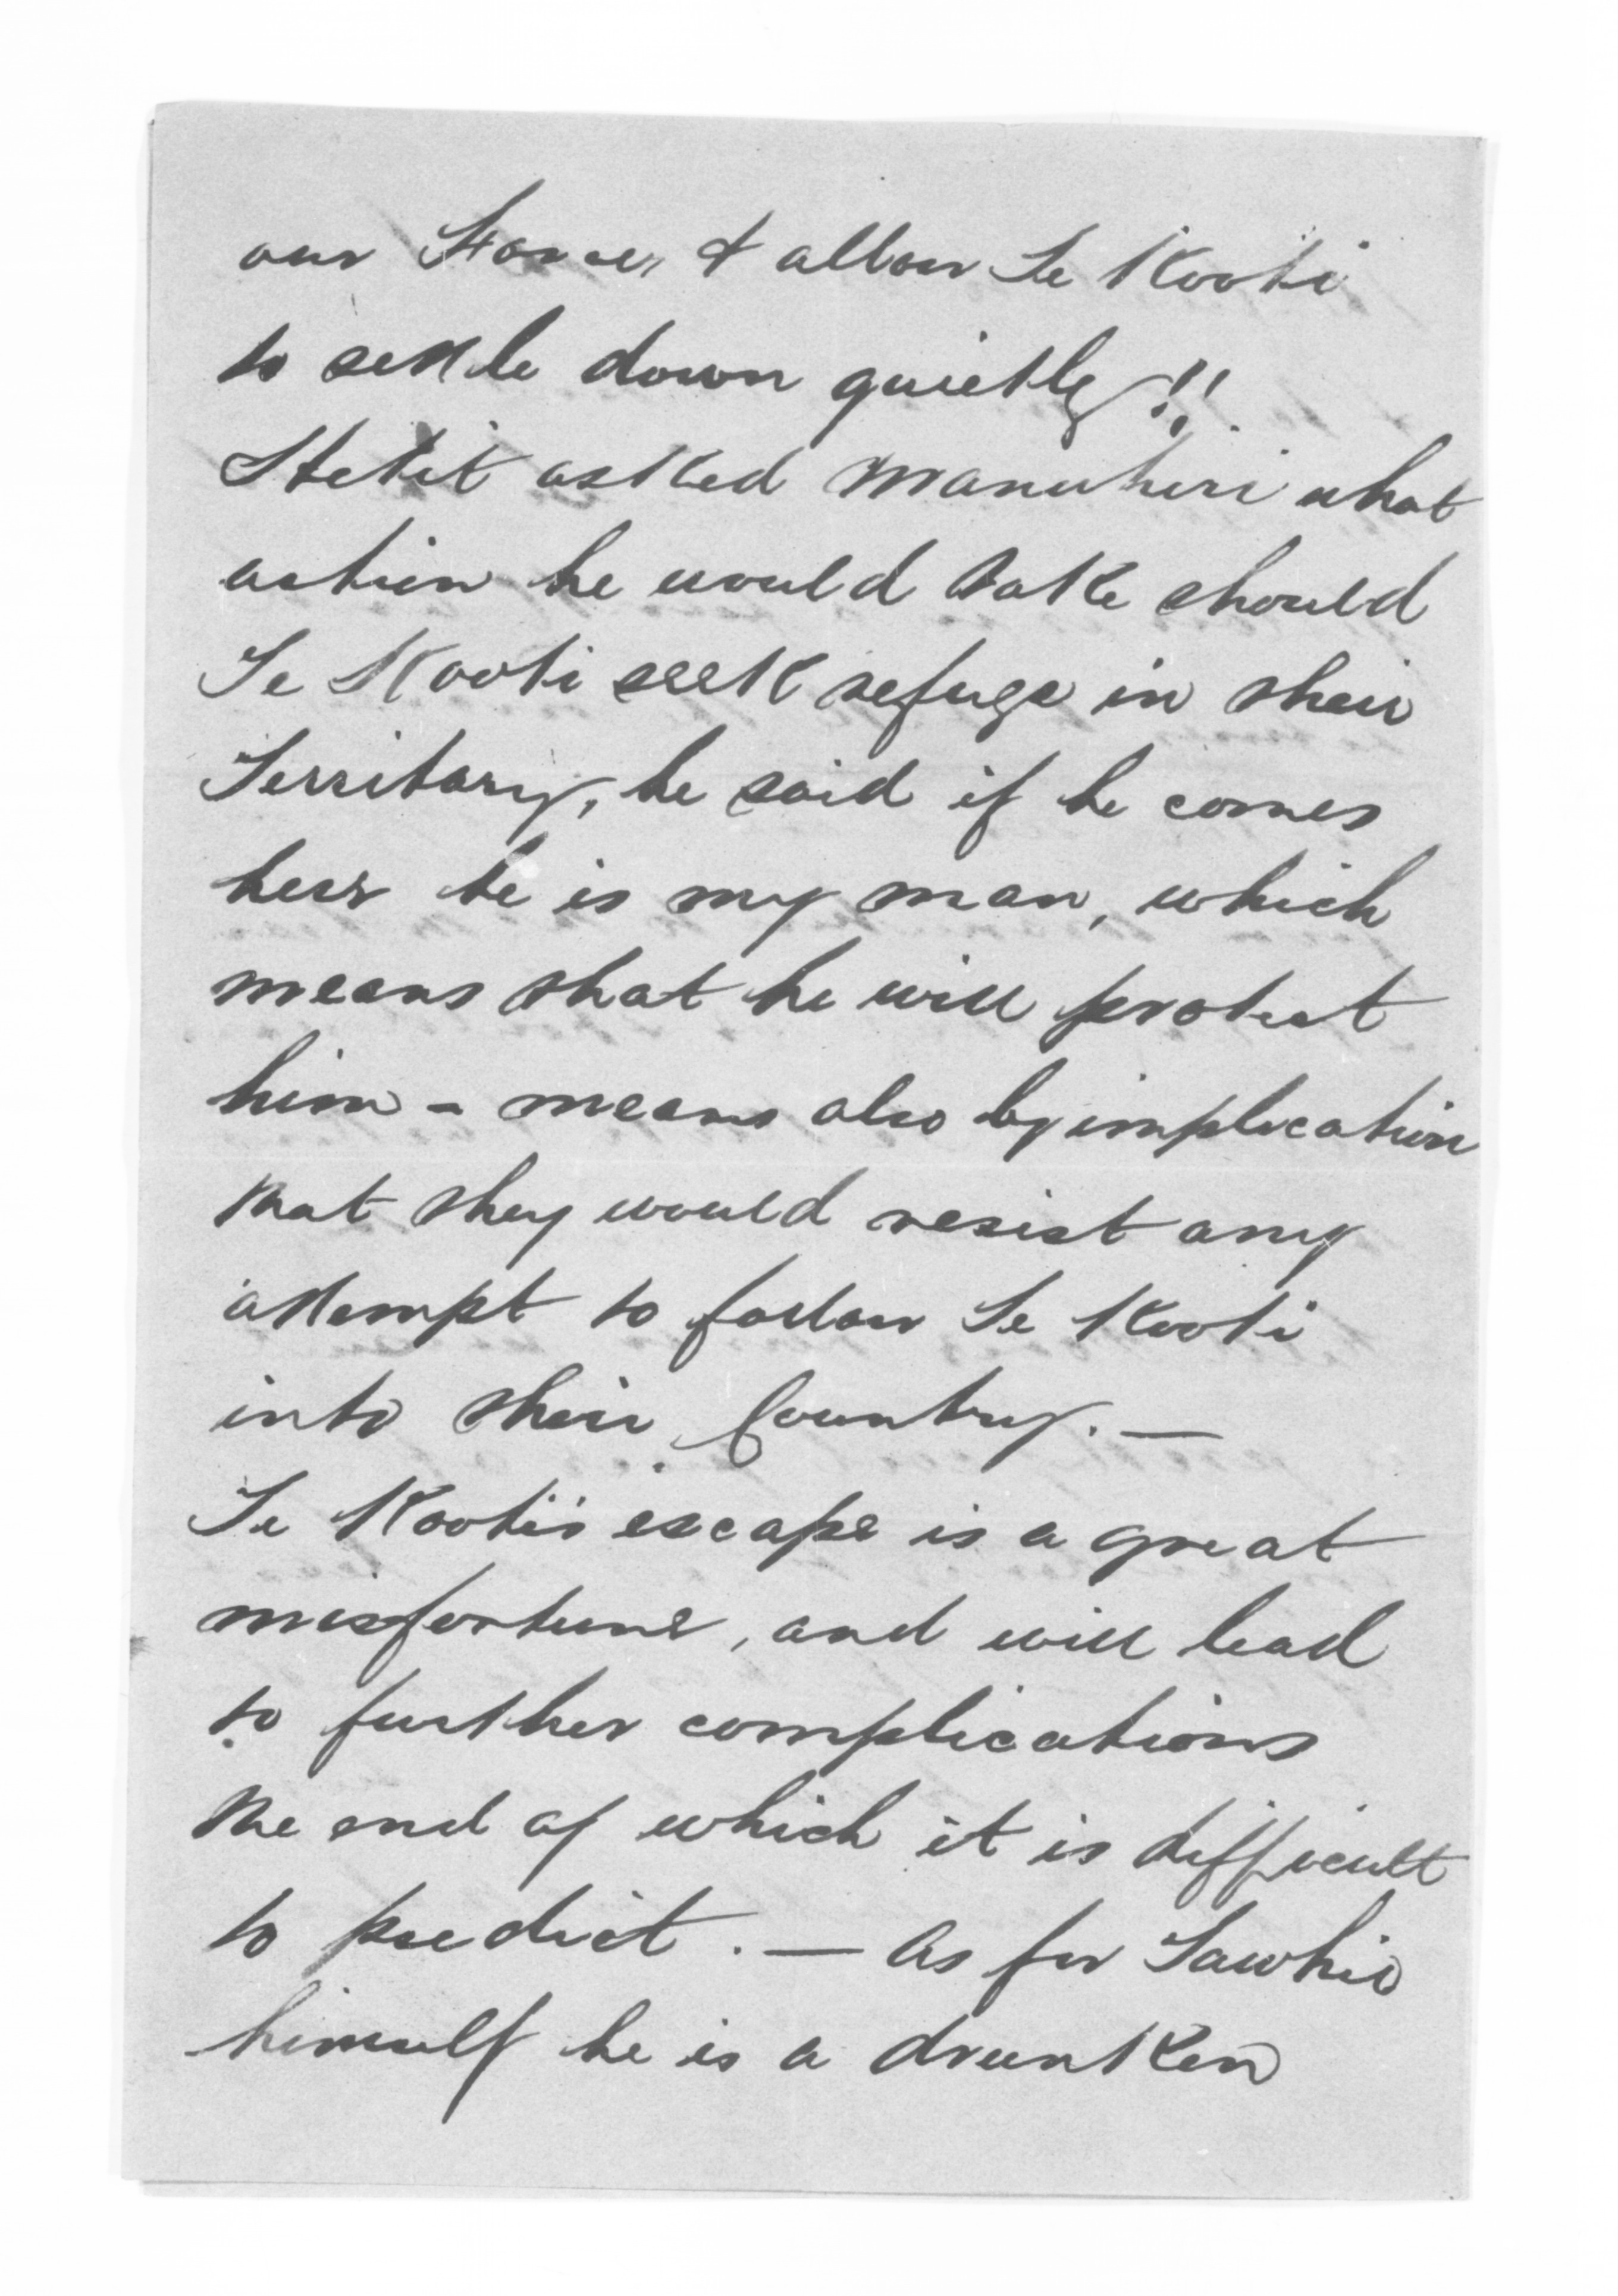 our Forces, & allow Te Kooti
to settle down quietly!!
asked Manuhiri what
action he would take should
Te Kooti seek refuge in their
Territory, he said if he comes
here he is my man, which
means that he will protect
him - means also by implication
that they would resist any
attempt to follow Te Kooti
into their Country. —
Te Kooti's escape is a great
misfortune, and will lead
to further complications
the end of which it is difficult
to predict. — As for Tawhio
himself he is a drunken